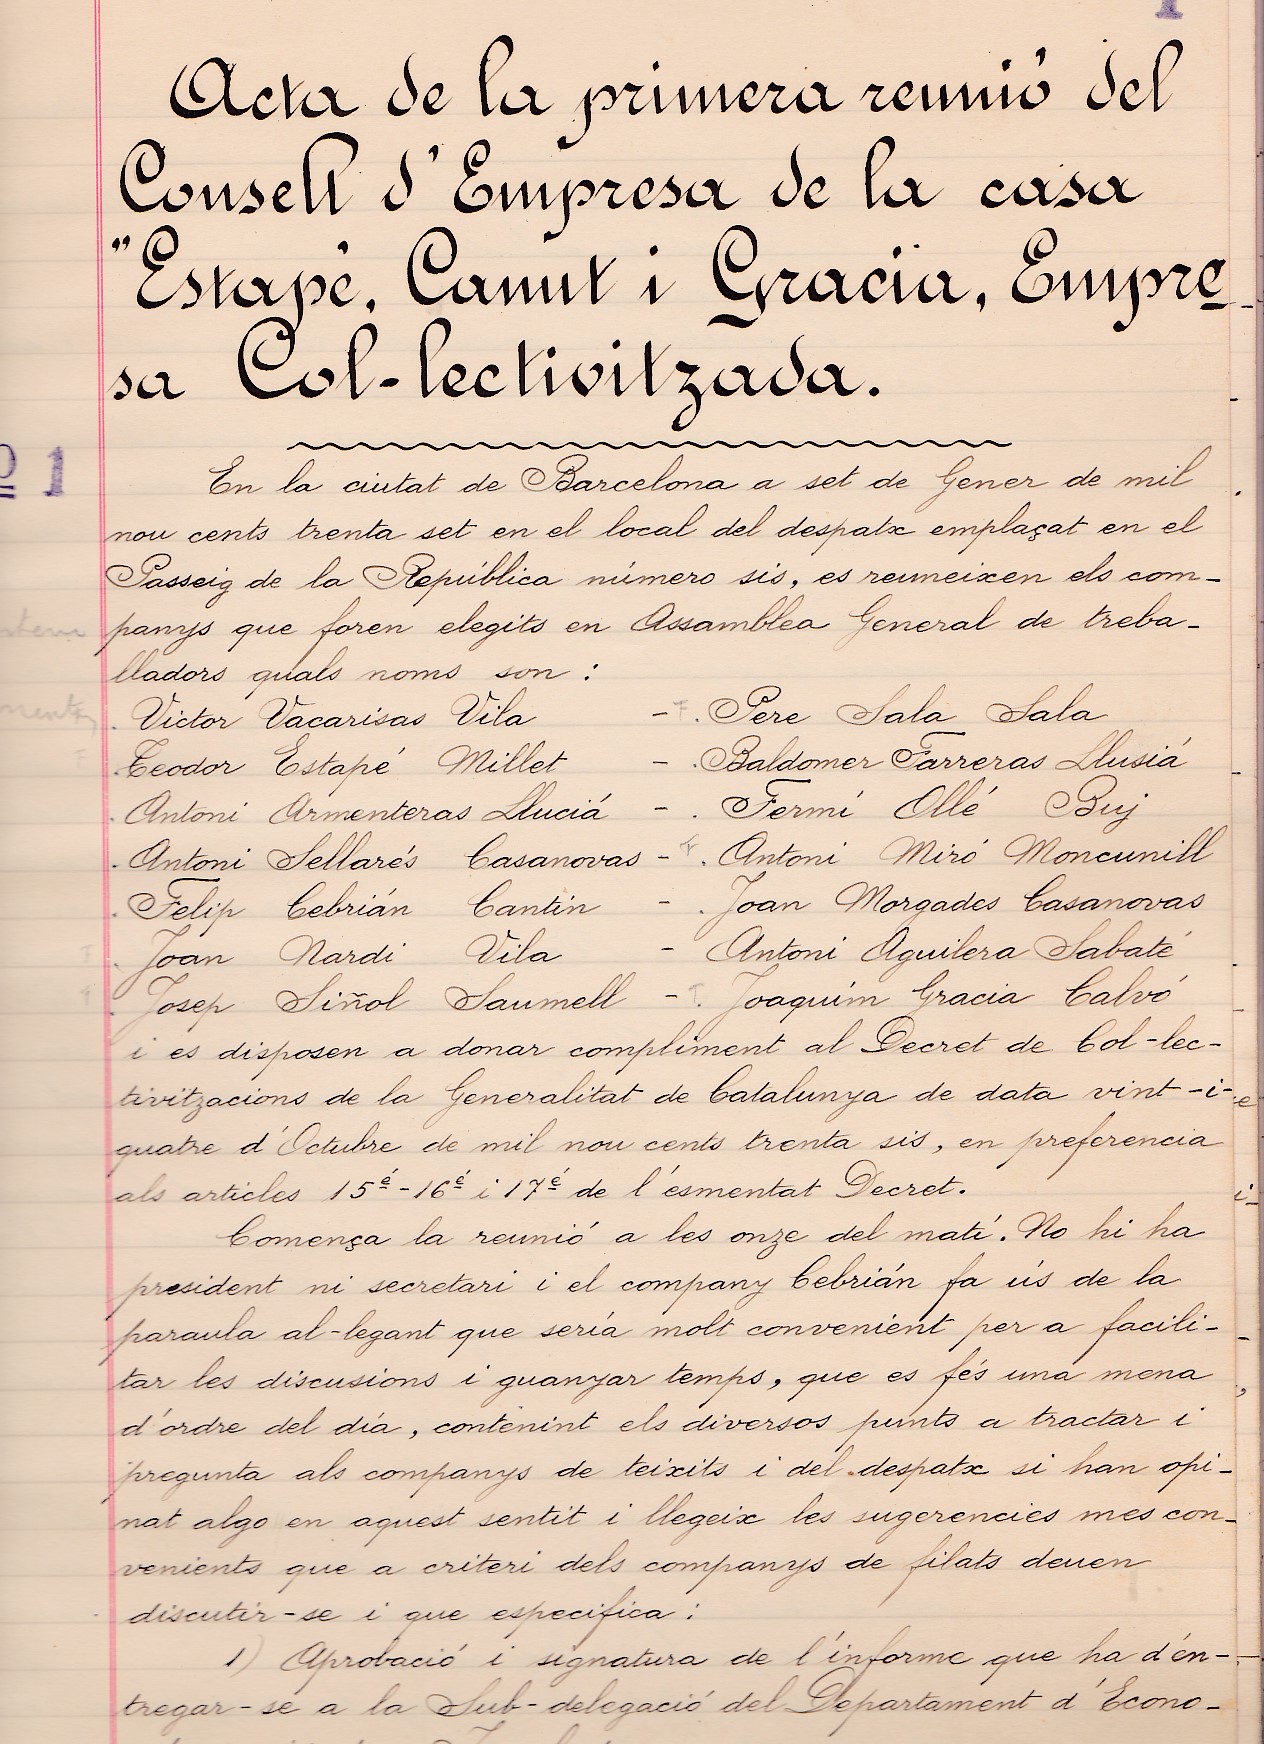 1
Acta de la primera reunió del
Consell d'Empresa de la casa
"Estapé, Canut i Gracia, Empre
sa Col-lectivitzada.
º 1
En la ciutat de Barcelona a set de Gener de mil
nou cents trenta set en el local del despatx emplaçat en el
Passeig de la República número sis, es reuneixen els com-
panys que foren elegits en Assamblea General de treba-
lladors quals noms son :
. Victor Vacarisas Vila - . Pere Sala Sala
. Teodor Estapé Millet - . Baldomer Farreras Llusiá
. Antoni Armenteras Lluciá - . Fermí Ollé Buj
. Antoni Sellarés Casanovas - . Antoni Miró Moncunill
. Felip Cebrián Cantin - . Joan Morgades Casanovas
. Joan Nardi Vila - Antoni Aguilera Sabaté
. Josep Siñol Saumell - . Joaquim Gracia Calvó
i es disposen a donar compliment al Decret de Col-lec-
tivitzacions de la Generalitat de Catalunya de data vint-i-
quatre d'Octubre de mil nou cents trenta sis, en preferencia
als articles 15é-16é i 17é de l'esmentat Decret.
Comença la reunió a les onze del matí. No hi ha
president ni secretari i el company Cebrián fa ús de la
paraula al-legant que sería molt convenient per a facili-
tar les discusions i guanyar temps, que es fés una mena
d'ordre del día, contenint els diversos punts a tractar i
pregunta als companys de teixits i del despatx si han opi-
nat algo en aquest sentit i llegeix les sugerencies mes con-
venients que a criteri dels companys de filats deuen
discutir-se i que especifica :
1) Aprobació i signatura de l'informe que ha d'en-
tregar-se a la Sub-delegació del Departament d'Econo-